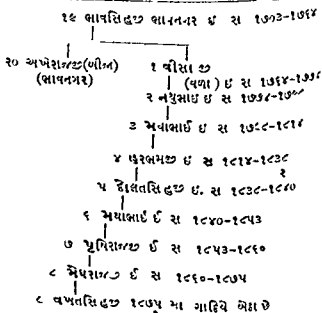 ૧૯ ભાવસિહજી ભાવનગર ઈ સ ૧૭૦૩-૧૭૬૪
૨૦ અખેરાજજી(બીજા)
(ભાવનગર)
૧ વીસાજી
(વળા) ઇ સ ૧૭૬૪-૧૭૭૪
૨ નથુભાઇ ઇ સ ૧૭૭૪-
૩ મયાભાઈ ઇ સ -૧૮૧૪
૪ હરભમજી ઇ સ ૧૮૧૪-૧૮૩૮
૫ દોલતસિહજી ઇ. સ ૧૮૩૮-૧૮૪૦
૬ મયાભાઈ ઈ સ ૧૮૪૦-૧૮૫૩
૭ પૃથિરાજજી ઈ સ ૧૮૫૩-૧૮૬૦
૮ મેઘરાજજી ઈ સ ૧૮૬૦-૧૮૭૫
૯ વખતસિહજી ૧૮૭૫ મા ગાદિયે બેઠા છે